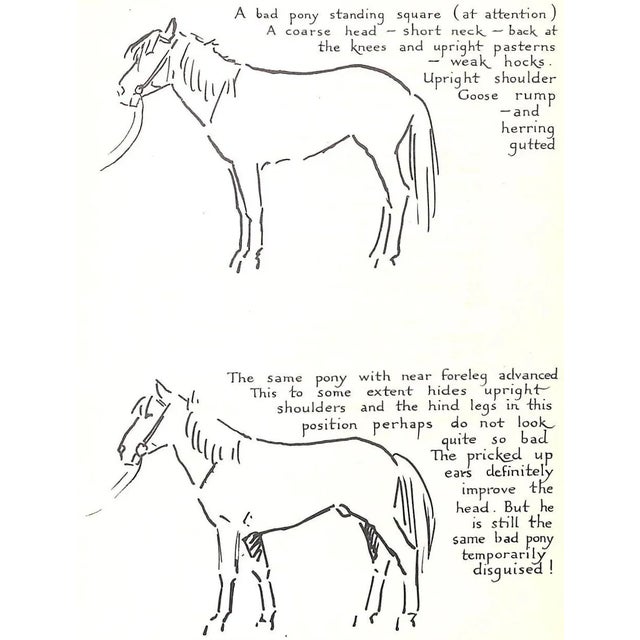 A bad pony standing square (at attention)
A coarse head – short neck – back at
the knees and upright pasterns
– weak hocks.
Upright shoulder
Goose rump
– and
herring
gutted
The same pony with near foreleg advanced
This to some extent hides upright
shoulders and the hind legs in this
position perhaps do not look
quite so bad
The pricked up
ears definitely
improve the
head. But he
is still the
same bad pony
temporarily
disguised!